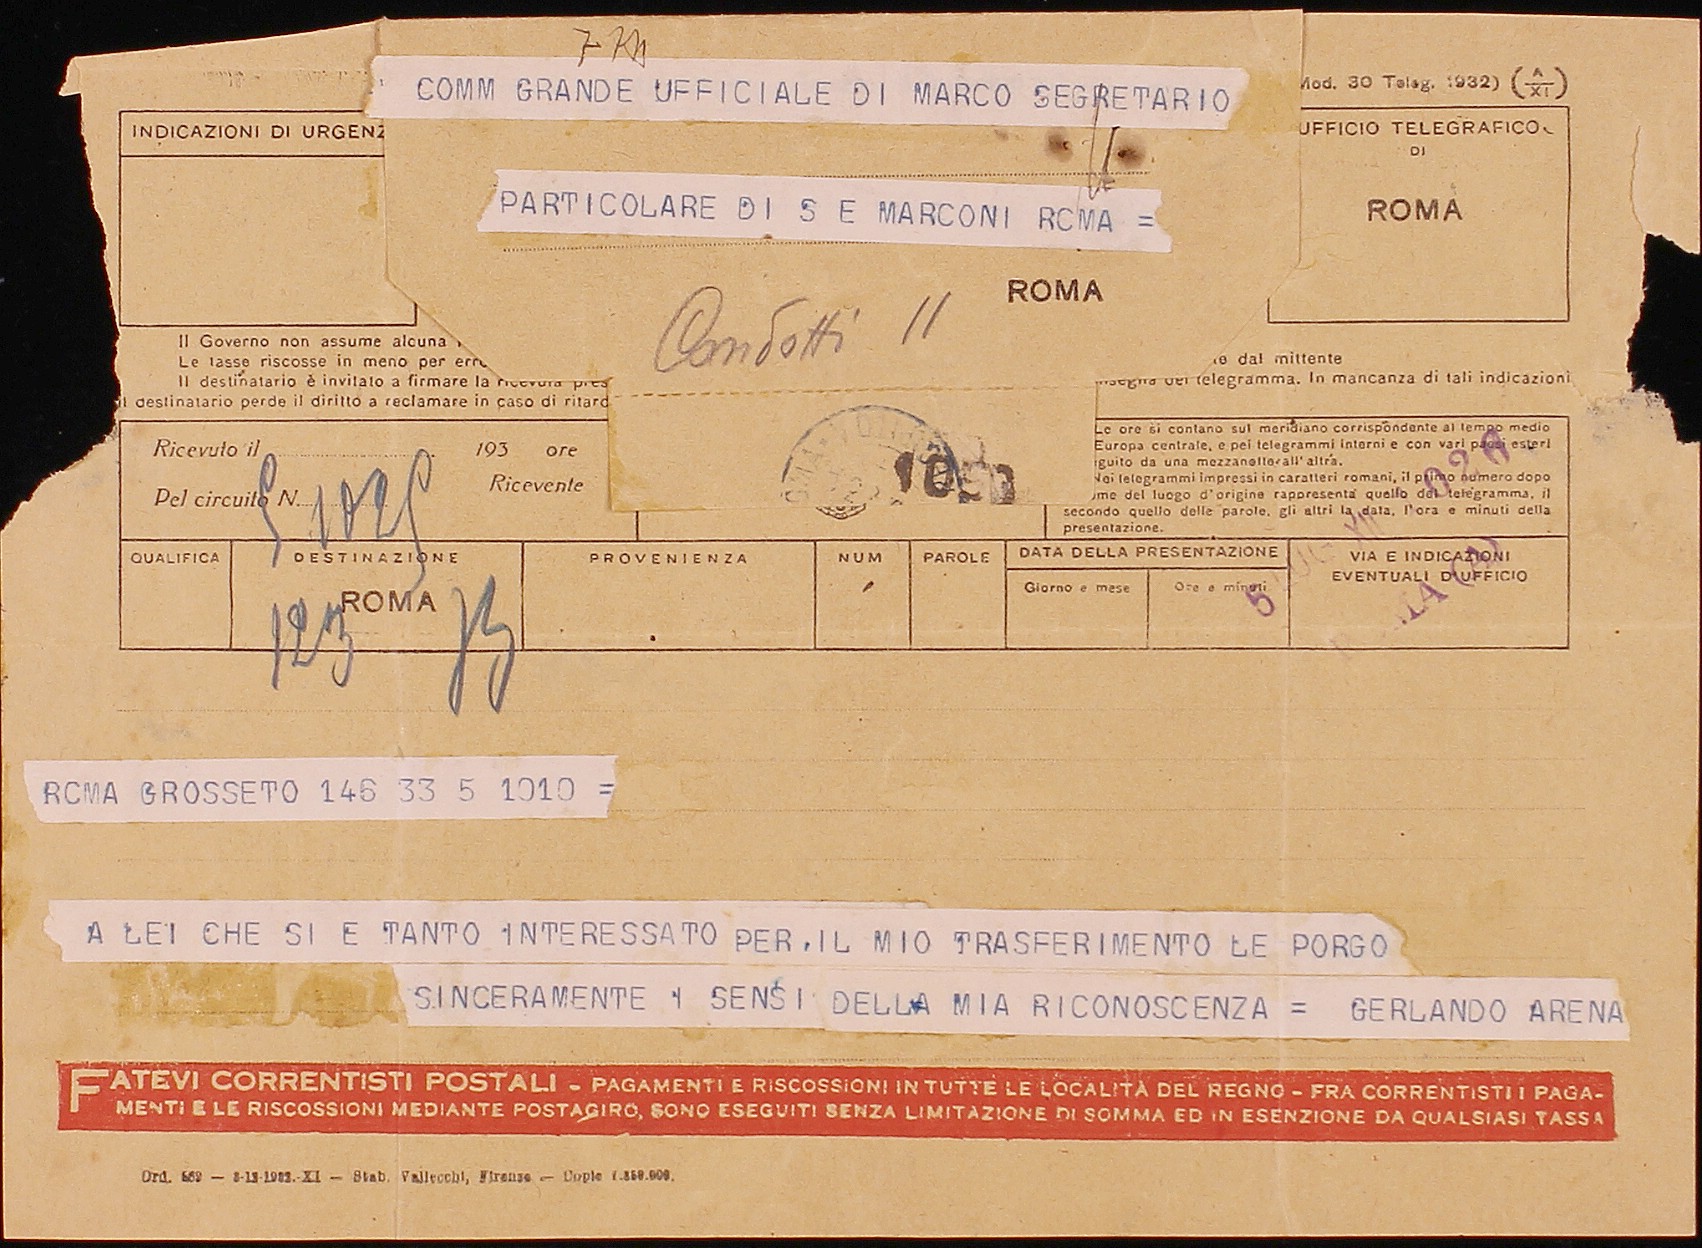 COMM GRANDE UFFICIALE DI MARCO SEGRETARIO
Mod. 30 Teleg. 1932) (A/XI)
INDICAZIONI DI URGENZ
UFFICIO TELEGRAFICO
DI
ROMA
PARTICOLARE DI S E MARCONI RCMA =
ROMA
Condotti 11
Il Governo non assume alcuna
Le tasse riscosse in meno per erro
dal mittente
Il destinatario è invitato a firmare la ricevuta pres
nsegna del telegramma. In mancanza di tali indicazioni
l destinatario perde il diritto a reclamare in caso di ritard
Ricevuto il 193 ore
Pel circuito N. Ricevente
Le ore si contano sul meridiano corrispondente al tempo medio
Europa centrale, e pei telegrammi interni e con vari paesi esteri
guito da una mezzanotte all'altra.
Nei telegrammi impressi in caratteri romani, il primo numero dopo
me del luogo d'origine rappresenta quello del telegramma, il
secondo quello delle parole, gli altri la data, l'ora e minuti della
presentazione.
QUALIFICA DESTINAZIONE PROVENIENZA NUM PAROLE DATA DELLA PRESENTAZIONE VIA E INDICAZIONI
EVENTUALI D'UFFICIO
Giorno e mese Ore e minuti
ROMA
123
RCMA GROSSETO 146 33 5 1010 =
A LEI CHE SI E TANTO INTERESSATO PER IL MIO TRASFERIMENTO LE PORGO
SINCERAMENTE I SENSI DELLA MIA RICONOSCENZA = GERLANDO ARENA
FATEVI CORRENTISTI POSTALI - PAGAMENTI E RISCOSSIONI IN TUTTE LE LOCALITÀ DEL REGNO - FRA CORRENTISTI I PAGA-
MENTI E LE RISCOSSIONI MEDIANTE POSTAGIRO, SONO ESEGUITI SENZA LIMITAZIONE DI SOMMA ED IN ESENZIONE DA QUALSIASI TASSA
Ord. 569 — 8-12-1932.-XI — Stab. Vallecchi, Firenze — Copie